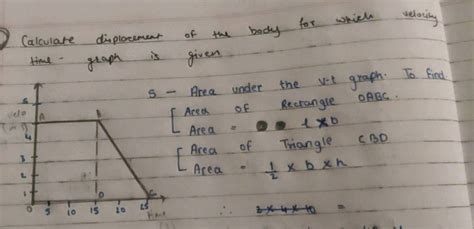 Calculate displacement of the body for which velocity
time - graph is given
S - Area under the v-t graph. To find
Area of Rectangle OABC.
Area = l x b
Area of Triangle CBD
Area - 1/2 x b x h
∴ 2 x 4 x 10 =
velo
5
4
3
2
1
0 5 10 15 20 25 time
A B C D